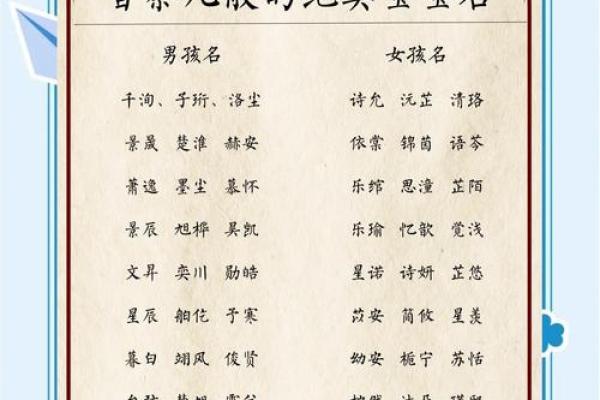 般的绝美宝宝名
男孩名 女孩名
千洵、子珩、洛尘 诗允 沅芷 清珞
景晟 楚淮 赫安 依棠 锦茵 语芩
萧逸 墨尘 慕怀 乐绾 思潼 芷陌
景辰 旭桦 昊凯 乐瑜 忆歆 觉浅
文昇 奕川 勋皓 星诺 诗妍 芷悠
星辰 舶佗 予寒 苡安 简攸 星羡
暮白 翊风 俊贤 幼安 栀宁 苏恬